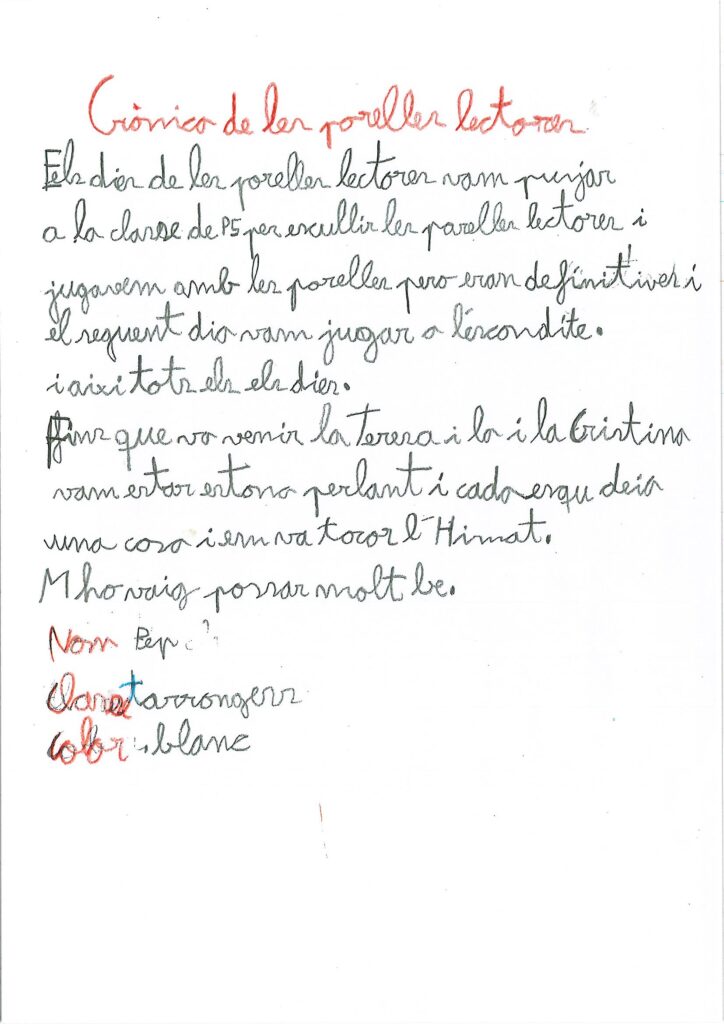 Crònica de les parelles lectores
Els dies de les parelles lectores vam punjar
a la classe de P5 per escullir les parelles lectores i
jugavem amb les parelles pero eran definitives i
el seguent dia vam jugar a l'escondite.
i aixi tots els els dies.
fins que va venir la Teresa i la i la Cristina
vam estar estona perlant i cada esqu deia
una cosa i em va tocar l'Himat.
M ho vaig possar molt be.
Nom Pep
Classe tarrongerss
color: blanc